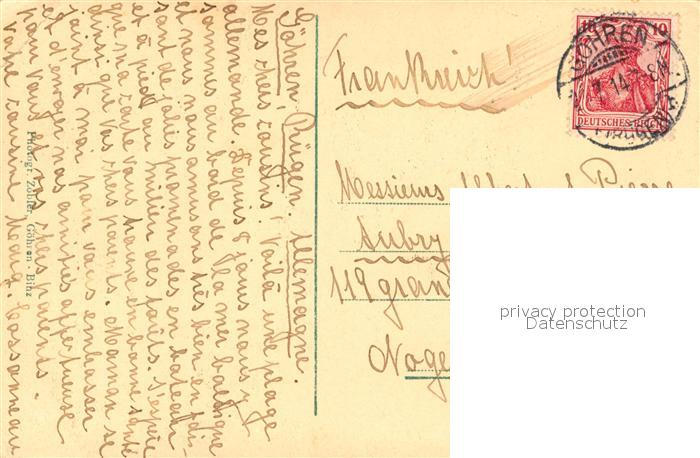 Göhren! Rügen. Allemagne.
Mes chers cousins! Voilà une plage
allemande. Depuis 8 jours nous y
sommes au bord de la mer baltique
et nous nous amusons très bien en fai-
sant de jolis promenades en bateau
et à pied au milien des forêts. J'espère
que ma carte vous trouve en bonne santé
ainsi que vos chers parents. Maman se
joint à moi pour vous embrasser
et d'envoyer nos amitiés affectueuse
pour vous et vos chers parents.
Votre cousine
Photogr. Zobler, Göhren - Binz
Frankreich!
10 10
DEUTSCHES REICH
GÖHREN
7.14. 8-9N
(RÜGEN)
Messieurs Albert et Pierre
Aubry
119 gran
Noge
privacy protection
Datenschutz